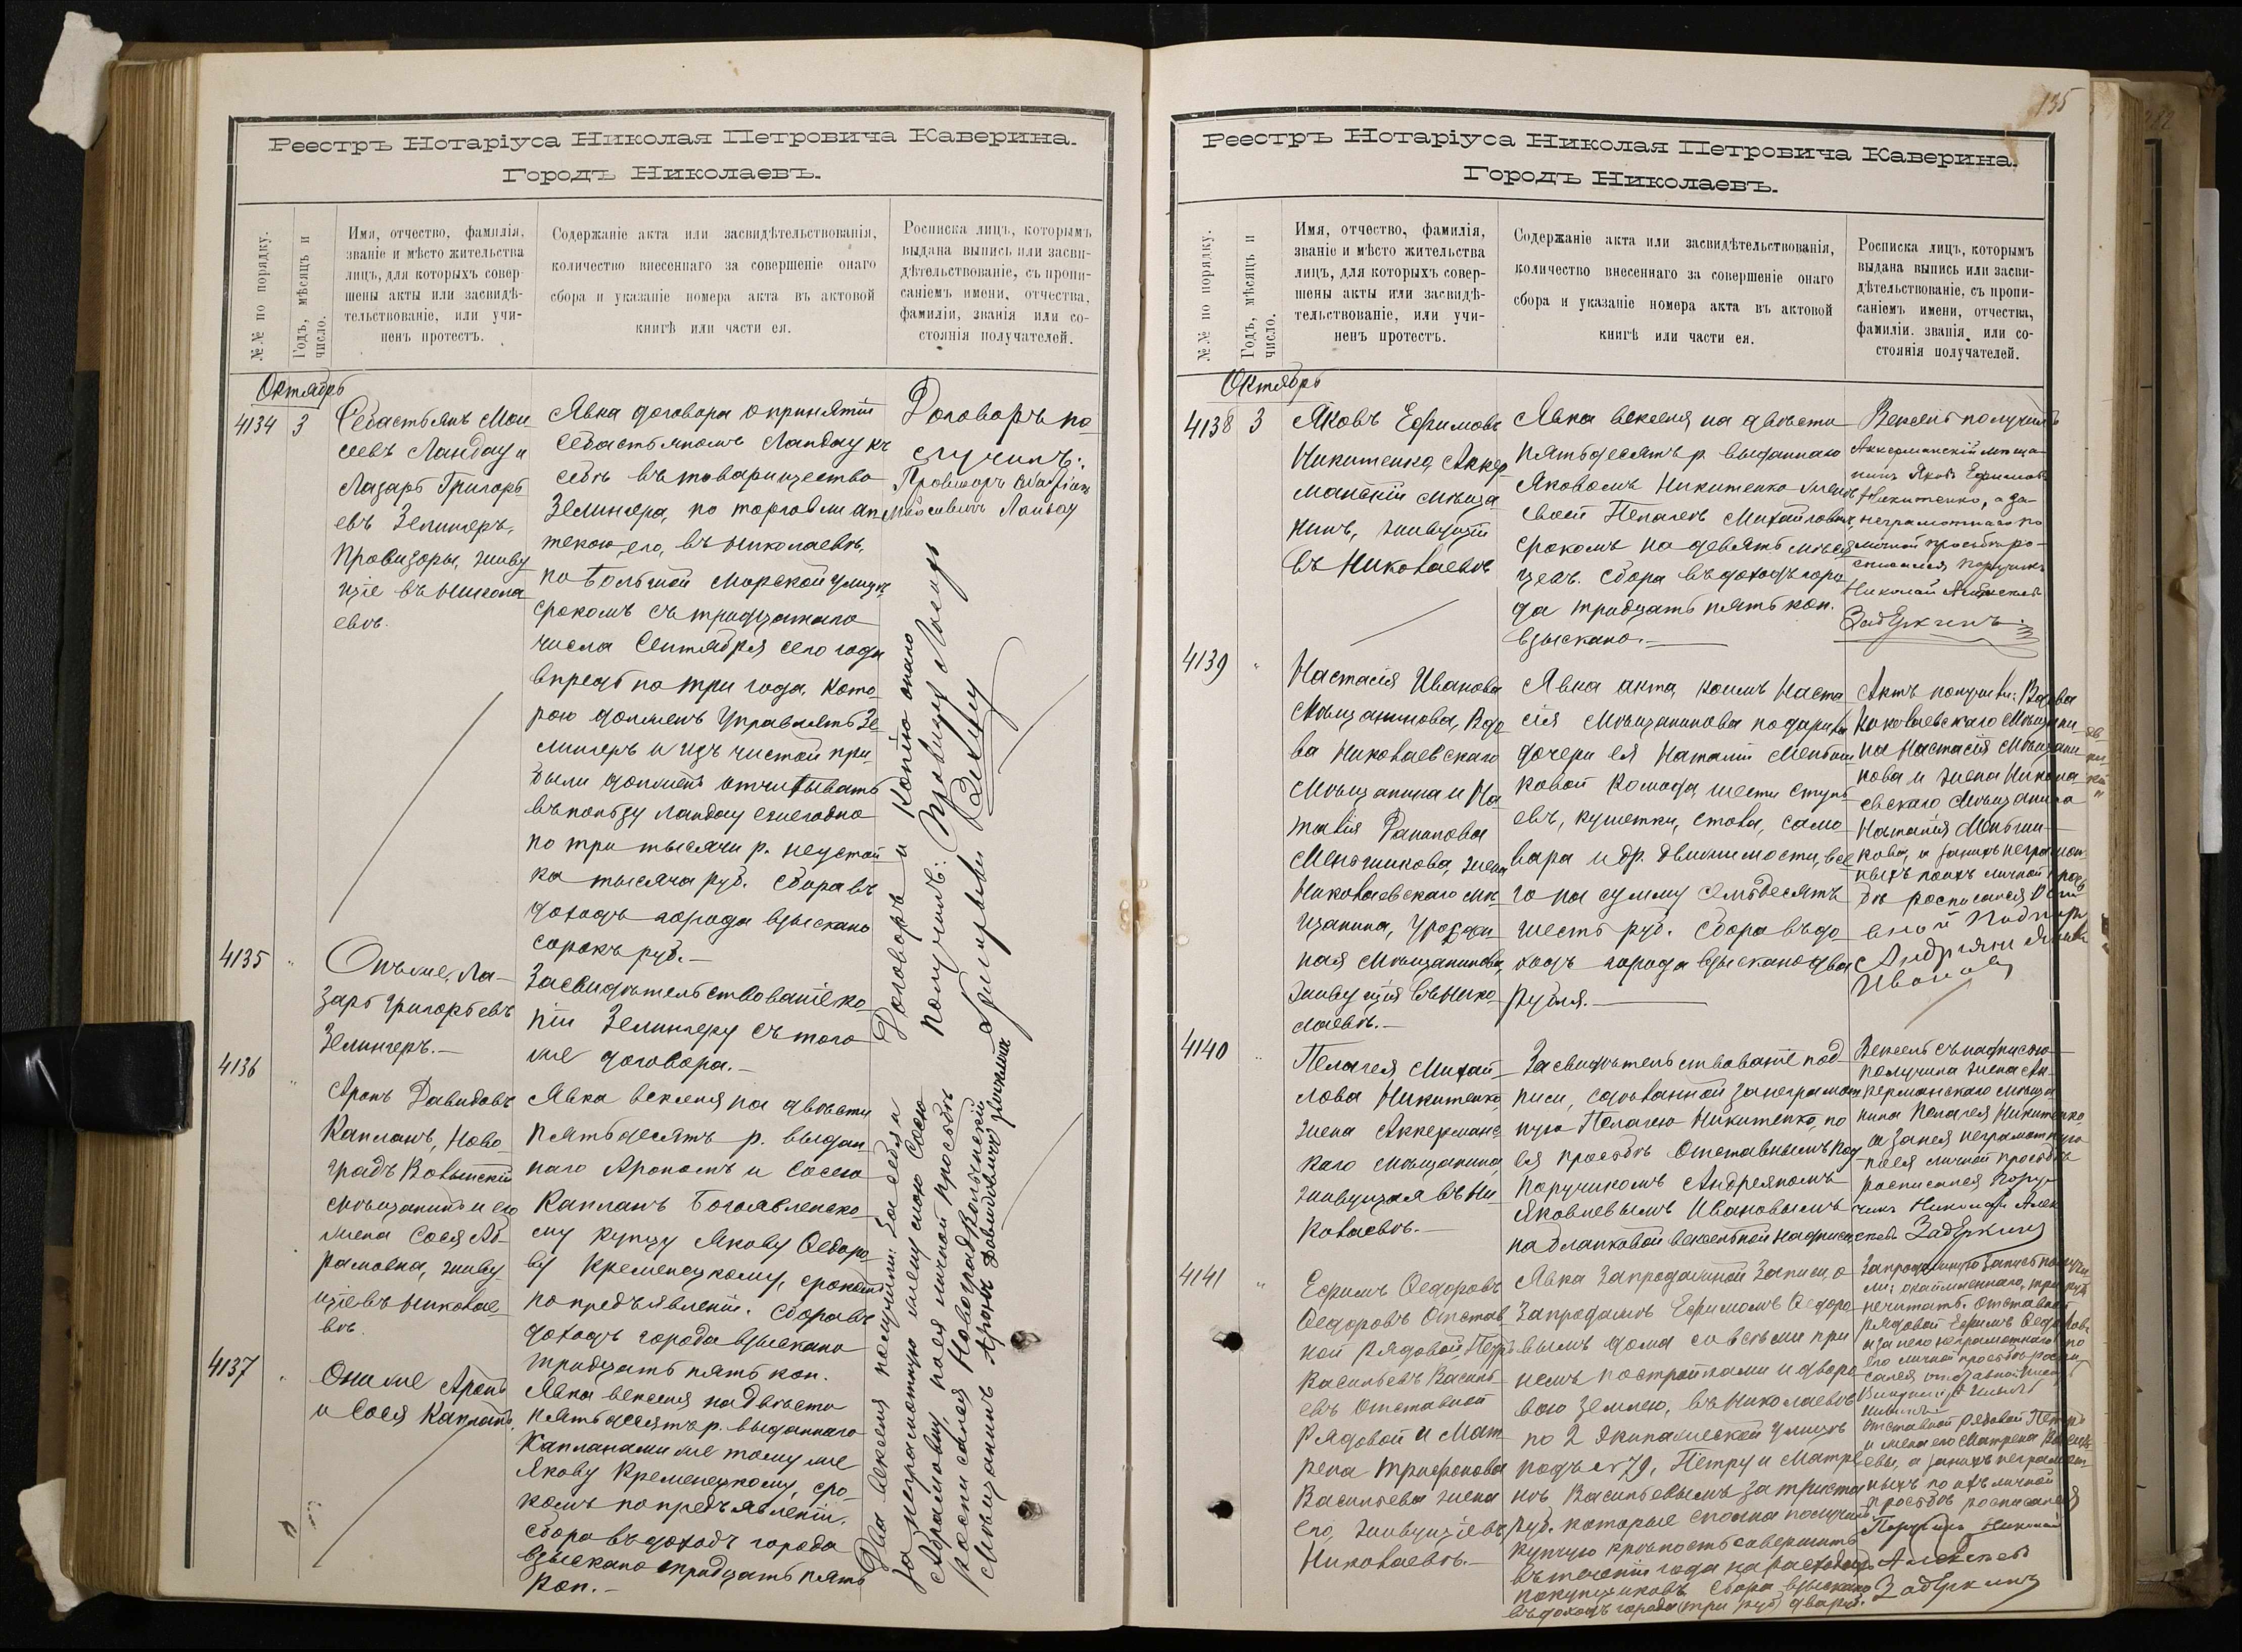 Реестръ Нотаріуса Николая Петровича Каверина.
Городъ Николаевъ.
№№ по порядку.
Годъ, мѣсяцъ и
число.
Имя, отчество, фамилія,
званіе и мѣсто жительства
лицъ, для которыхъ совер-
шены акты или засвидѣ-
тельствованіе, или учи-
ненъ протестъ.
Содержаніе акта или засвидѣтельствованія,
количество внесеннаго за совершеніе онаго
сбора и указаніе номера акта въ актовой
книгѣ или части ея.
Росписка лицъ, которымъ
выдана выпись или засви-
дѣтельствованіе, съ пропи-
саніемъ имени, отчества,
фамиліи, званія или со-
стоянія получателей.
Октябрь
4134 3
Себастьянъ Мои
сеевъ Ландау и
Лазарь Григорь
евъ Зелингеръ,
Провизоры, живу
щіе въ Никола
евѣ.
Явка договора о принятіи
Себастьяномъ Ландау къ
себѣ въ товарищество
Зелингера, по торговли ап
текою, его, въ Николаевѣ,
по Большой Морской улицѣ,
срокомъ съ тридцатаго
числа Сентября сего года
впредь на три года, кото
рою долженъ управлять Зе
лингеръ и изъ чистой при
были долженъ отчитывать
въ пользу Ландау ежегодно
по три тысячи р. неустой
ка тысяча руб. Сбора въ
доходъ города взыскано
сорокъ руб.—
Договоръ по
лучилъ:
Провизоръ
Моисеевичъ Ландау
4135 "
Онъ же, Ла-
зарь Григорьевъ
Зелингеръ.—
Засвидѣтельствованіе ко
піи Зелингеру съ того
же договора.—
Договоръ и копію онаго
получилъ: Провизоръ Лазарь
4136 "
Аронъ Давидовъ
Капланъ, Ново
градъ Волынскій
мѣщанинъ и его
жена Сося Аб-
рамовна, живу
щіе въ Николае
вѣ.
Явка векселя на двѣсти
пятьдесятъ р. выдан
наго Арономъ и Сосею
Капланъ Богоявленско
му купцу Якову Федоро
ву Кременецкому, срокомъ
по предъявленіи. Сбора въ
доходъ города взыскано
тридцать пять коп.
4137 "
Они же Аронъ
и Сося Капланъ.
Явка векселя на двѣсти
пятьдесятъ р. выданнаго
Капланами же тому же
Якову Кременецкому, сро-
комъ по предъявленіи.
Сбора въ доходъ города
взыскано тридцать пять
коп.—
Два векселя получили: за себя и
за неграмотную жену свою Сосю
Абрамовну, по ея личной просьбѣ
росписался Новоградволынскій
Мѣщанинъ Аронъ Давидовичъ
135
Реестръ Нотаріуса Николая Петровича Каверина.
Городъ Николаевъ.
№№ по порядку.
Годъ, мѣсяцъ и
число.
Имя, отчество, фамилія,
званіе и мѣсто жительства
лицъ, для которыхъ совер-
шены акты или засвидѣ-
тельствованіе, или учи-
ненъ протестъ.
Содержаніе акта или засвидѣтельствованія,
количество внесеннаго за совершеніе онаго
сбора и указаніе номера акта въ актовой
книгѣ или части ея.
Росписка лицъ, которымъ
выдана выпись или засви-
дѣтельствованіе, съ пропи-
саніемъ имени, отчества,
фамиліи, званія или со-
стоянія получателей.
Октябрь
4138 3
Яковъ Ефимовъ
Никитенко, Аккер
манскій мѣща
нинъ, живущій
въ Николаевѣ
Явка векселя на двѣсти
пятьдесятъ р. выданнаго
Яковомъ Никитенко женѣ
своей Пелагеѣ Михайловой,
срокомъ на девять мѣся
цевъ. Сбора въ доходъ горо
да тридцать пять коп.
взыскано.—
Вексель получилъ
Аккерманскій мѣща
нинъ Яковъ Ефимовъ
Никитенко, а за
неграмотнаго по
личной просьбѣ ро-
списался Поручикъ
Николай Алексѣевъ
Задеркинъ.
4139 "
Настасія Иванова
Мѣщанинова, Вдо
ва Николаевскаго
Мѣщанина и На
талія Данилова
Меньшикова, жена
Николаевскаго мѣ
щанина, урожден
ная Мѣщанинова,
живущія въ Нико
лаевѣ.—
Явка акта, коимъ Наста
сія Мѣщанинова подарила
дочери ея Наталіи Меньши
ковой комода, шести стуль
евъ, кушетки, стола, само
вара и др. движимости, все
го на сумму семьдесятъ
шесть руб. Сбора въ до
ходъ города взыскано два
рубля.—
Актъ получили: Вдова
Николаевскаго Мѣщани
на Настасія Мѣщани
нова и жена Никола
евскаго Мѣщанина
Наталія Меньши
кова, а за нихъ неграмот
ныхъ по ихъ личной прось
бѣ росписался
Ивановъ
4140 "
Пелагея Михай
лова Никитенко,
жена Аккерманс
каго мѣщанина,
живущая въ Ни
колаевѣ.—
Засвидѣтельствованіе под
писи, сдѣланной за неграмот
ную Пелагею Никитенко, по
ея просьбѣ Отставнымъ Под
поручикомъ Андреяномъ
Яковлевымъ Ивановымъ
на бланковой вексельной надписи.
Вексель съ надписью
получила жена Ак
керманскаго мѣща
нина Пелагея Никитенко
а за нея неграмотную
по ея личной просьбѣ
росписался Пору
чикъ Николай Алек
сѣевъ Задеркинъ
4141 "
Ефимъ Федоровъ
Федоровъ Отстав
ной Рядовой, Петръ
Васильевъ Василь
евъ Отставной
Рядовой и Мат
рена Трифонова
Васильева жена
его, живущіе въ
Николаевѣ.—
Явка Запродажной Записи, о
запродажѣ Ефимомъ Федоро
вымъ дома со всѣми при
немъ постройками и дворо
вою землею, въ Николаевѣ
по 2 Экипажеской улицѣ
подъ № 79, Петру и Матре
нѣ Васильевымъ за триста
руб. которые сполна получилъ
купчую крѣпость совершить
въ теченіи года на расходахъ
покупщиковъ. Сбора взыскано
въ доходъ города (три руб) два руб.
Запродажную Запись получи
ли,
не читать. Отставной
рядовой Ефимъ Федоровъ
а за него неграмотнаго по
его личной просьбѣ роспи
сался отставной
Отставной рядовой Петръ
и жена его Матрена Василь
евы, а за нихъ неграмот
ныхъ по ихъ личной
просьбѣ росписался
Поручикъ Николай
Алексѣевъ
Задеркинъ